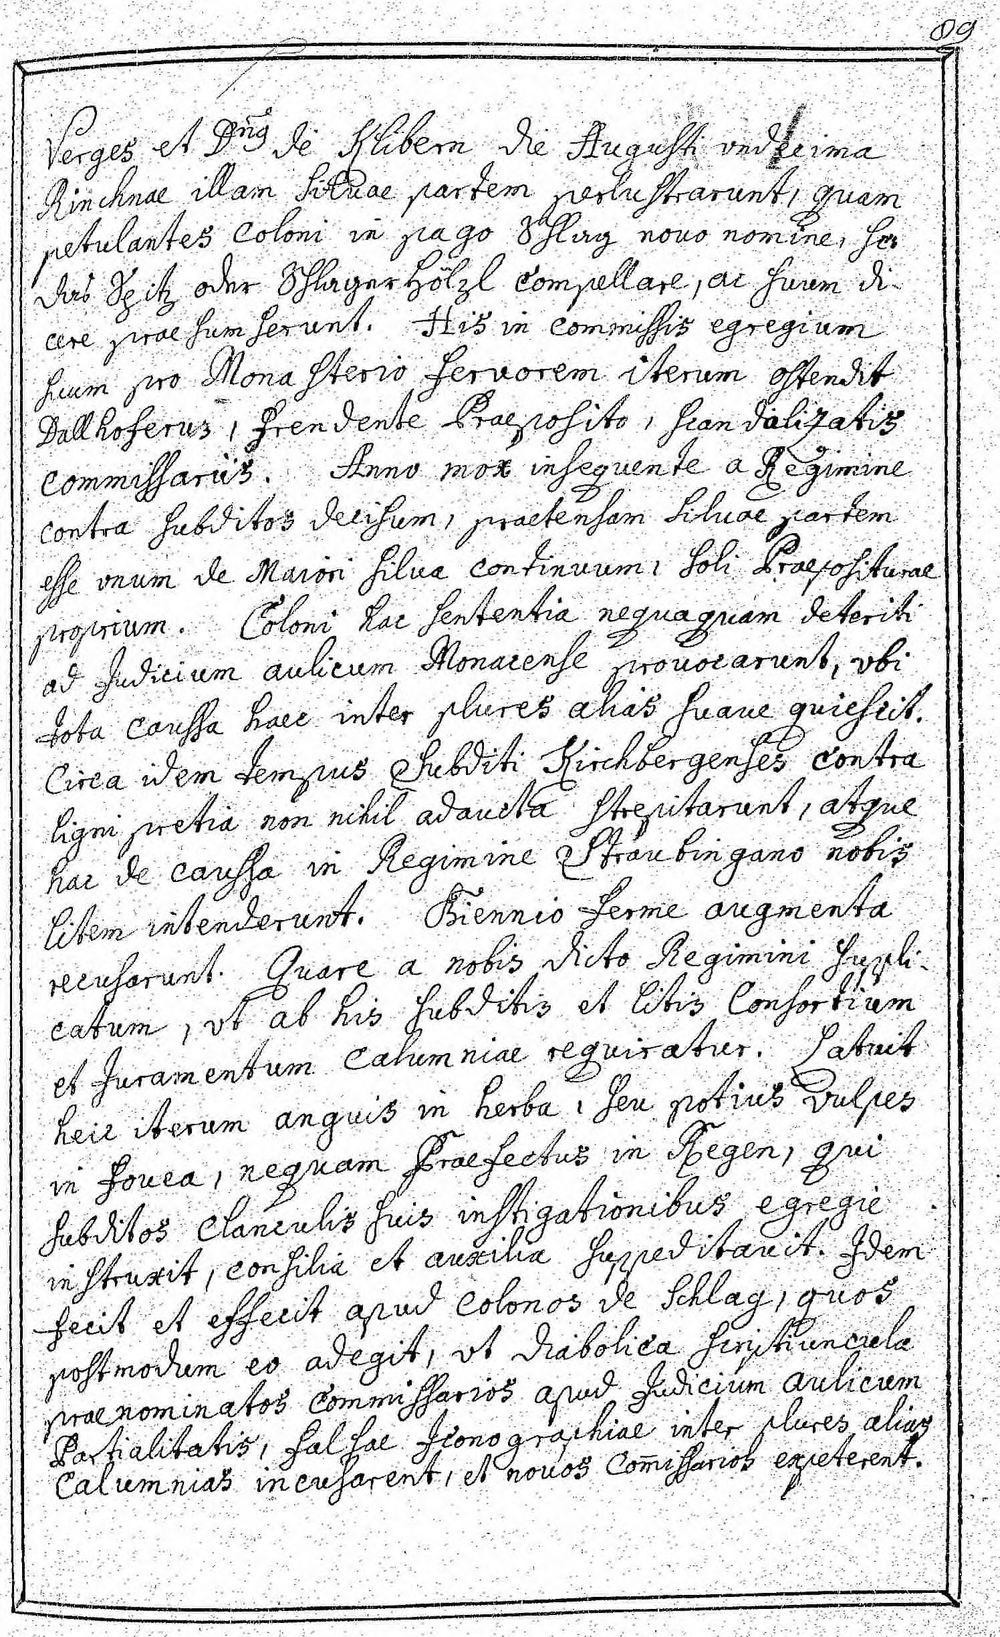 89
Verges et Dn̄g de Klibern die Augusti undecima
Rinchnae illam Siluae partem perlustrarunt, quam
petulantes Coloni in pago Schlag nouo nomine,
das Spitz oder Schlager Hölzl compellare, ac suum di-
cere praesumserunt. His in commissis egregium
suum pro Monasterio fervorem iterum ostendit
Dallhoferus, frendente Praeposito, scandalizatis
Commissariis. Anno mox insequente a Regimine
contra subditos decisum, praetensam Siluae partem
esse vnum de Maiori silua continuum, soli Praepositurae
proprium. Coloni hac sententia nequaquam deteriti
ad Judicium aulicum Monacense prouocarunt, vbi
tota caussa haec inter plures alias suaue quiescit.
Circa idem tempus Subditi Kirchbergenses contra
ligni pretia non nihil adaucta strepitarunt, atque
hac de caussa in Regimine Straubingano nobis
litem intenderunt. Biennio ferme augmenta
recusarunt. Quare a nobis dicto Regimini suppli-
catum, vt ab his subditis et litis Consortium
et Juramentum Calumniae requiratur. Latuit
heic iterum anguis in herba, seu potius vulpes
in fouea, nequam Praefectus in Regen, qui
subditos clanculis suis instigationibus egregie
instruxit, consilia et auxilia suppeditauit. Idem
fecit et effecit apud colonos de Schlag, quos
postmodum eo adegit, vt diabolica scriptiuncula
praenominatos Commissarios apud Judicium aulicum
Partialitatis, falsae Iconographiae inter plures alias
Calumnias incusarent, et nouos Com̄issarios expeterent.